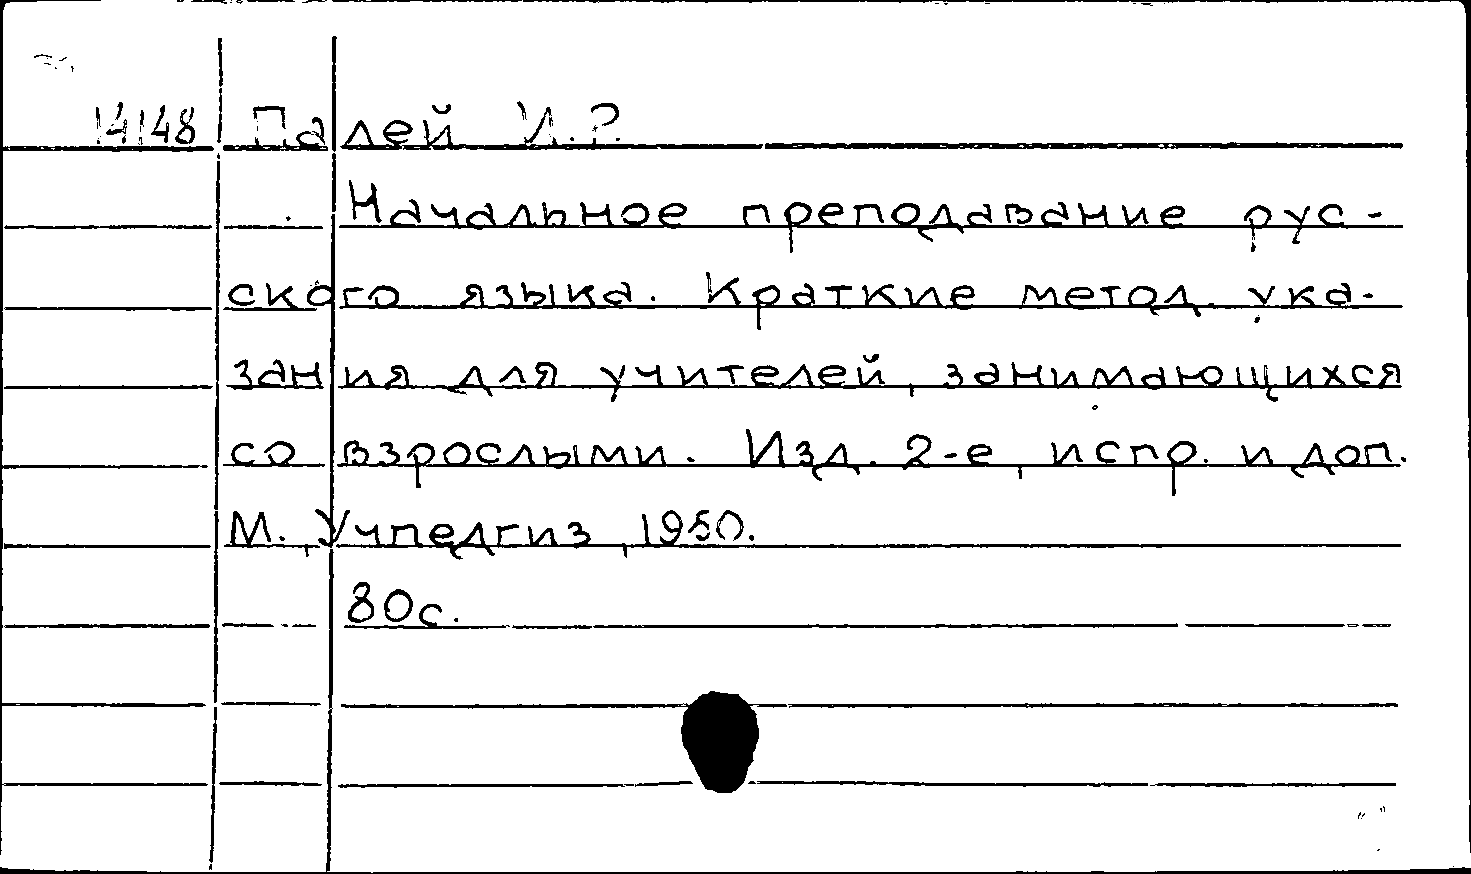 14148 Палей И.Р.
Начальное преподавание рус-
ского языка. Краткие метод. ука-
зания для учителей, занимающихся
со взрослыми. Изд. 2-е, испр. и доп.
М., Учпедгиз, 1950.
80с.